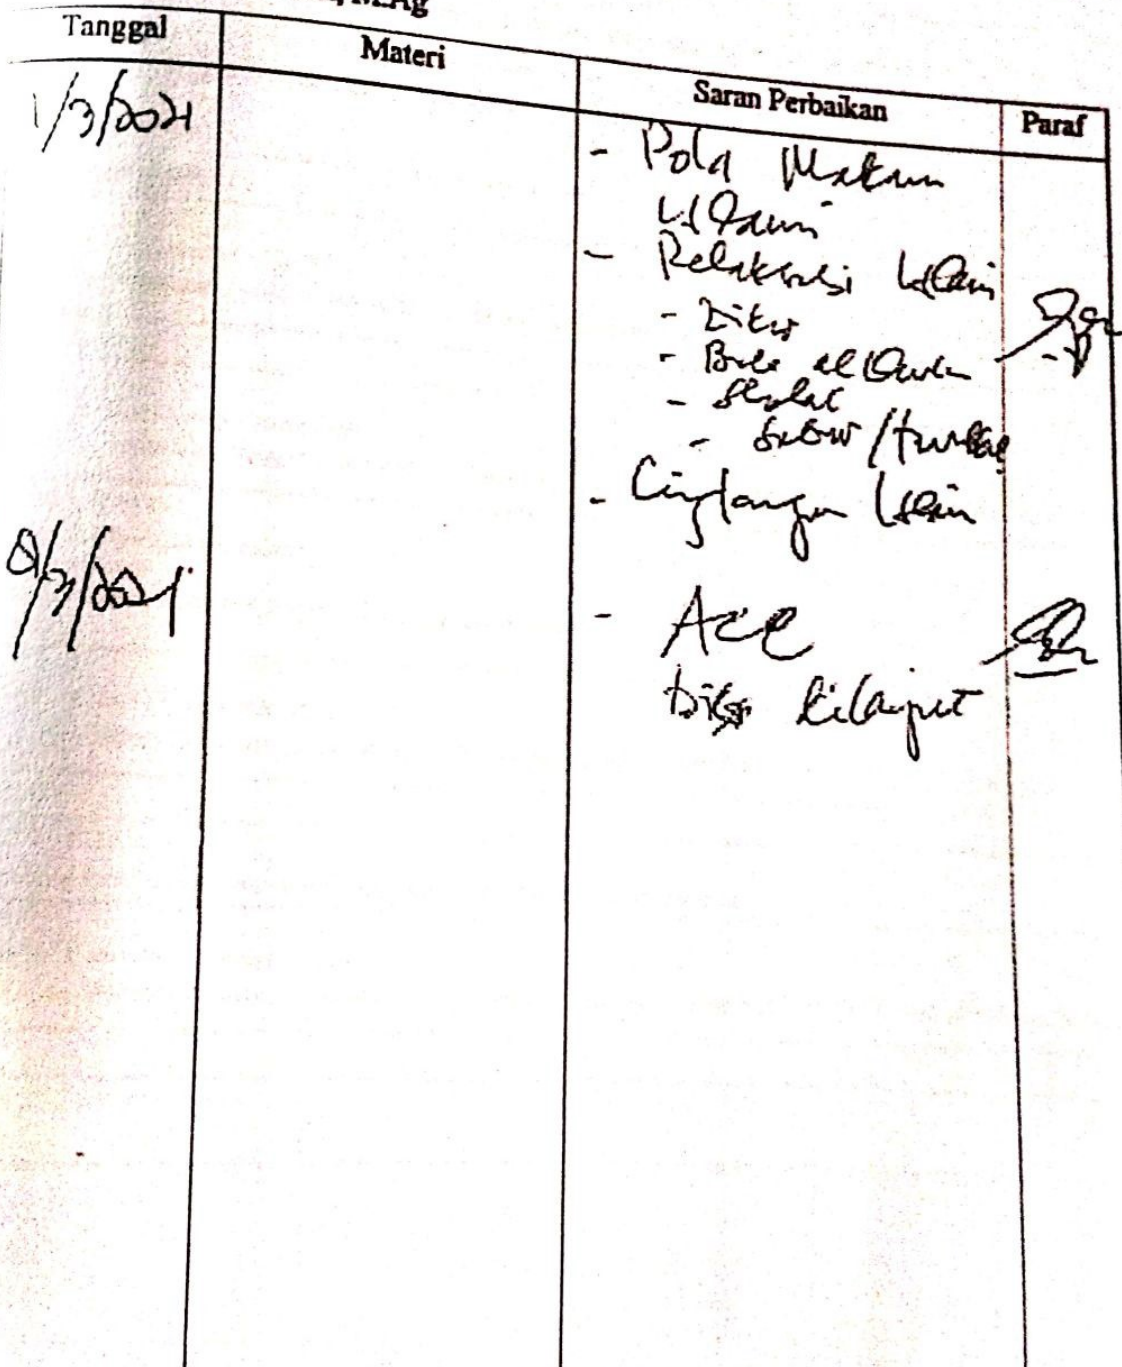 M.Ag
Tanggal
Materi
Saran Perbaikan
Paraf
1/3/2021
- Pola Makan
Islami
- Relaksasi Islami
- Zikir
- Baca al Quran
- Sholat
- Sabar /
- Lingkungan Islami
8/3/2021
- Acc
dilanjut